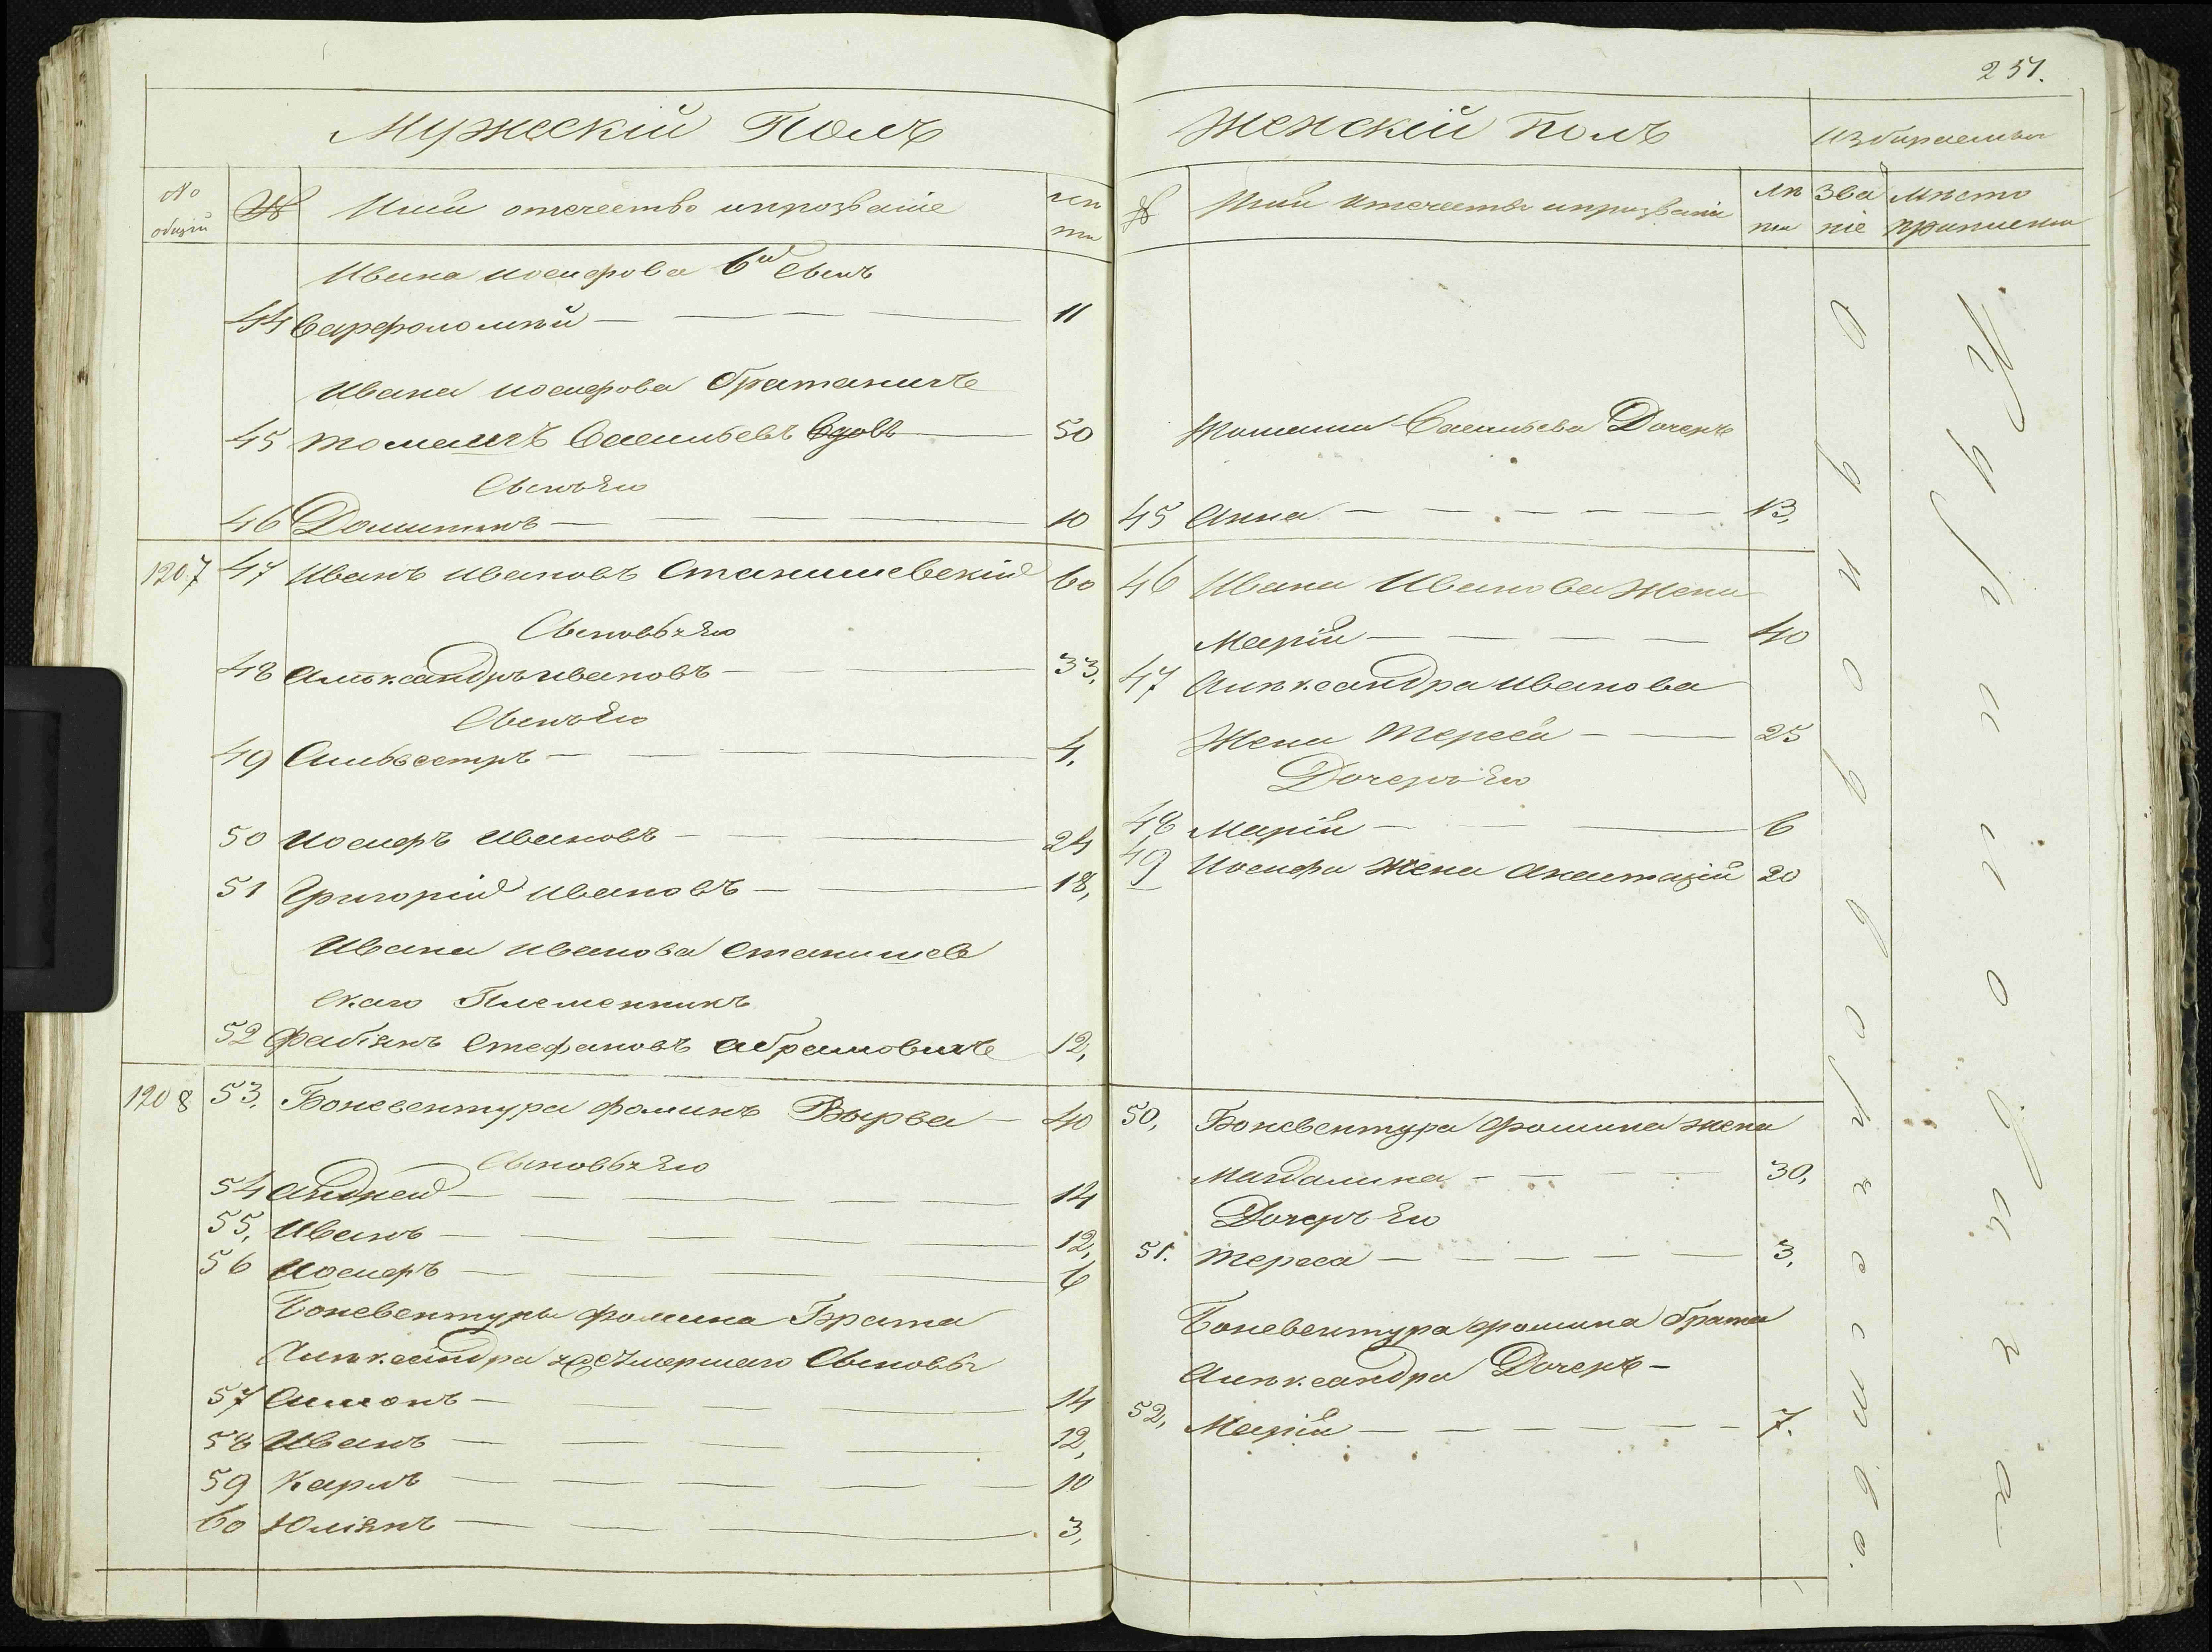 251.
Мужескій Полъ
№ общій
№
Имя отечество ипрозваніе
лѣта
Ивана иосифова 6й Сынъ
44 Варфоломѣй — 11
Ивана иосифова братаничъ
45 Томашъ Васильевъ Вдовъ — 50
Сынъ Его
46 Доминикъ — 10
1207 47 Иванъ Ивановъ Станишевскій 60
Сыновья Его
48 Александръ ивановъ — 33,
Сынъ Его
49 Сильвестръ — 4,
50 Иосифъ Ивановъ — 24
51 Григорій Ивановъ — 18,
Ивана иванова Станишев
скаго Племенникъ
52 Фабіянъ Стефановъ абрамовичъ 12,
1208 53, Боневентура фоминъ Вырва — 40
Сыновья Его
54 Андрей — 14
55, Иванъ — 12,
56 Иосифъ — 6
Боневентуры фомина Брата
Александра умершаго Сыновья
57 Симонъ — 14
58 Иванъ — 12,
59 Карлъ — 10
60 Юліянъ — 3,
Женскій полъ
Избираемыя
№
Имя Отечество ипрозваніе
лѣта
Званіе
Мѣсто приписки
Томаша Васильева Дочерь
45 Анна — 13,
46 Ивана Иванова Жена
Марія — 40
47 Александра иванова
Жена Тереса — 25
Дочерь Его
48 Марія — 6
49 Иосифа жена Анастазія 20
50, Боневентура фомина жена
Магдалина — 30,
Дочерь Его
51. Тереса — 3,
Боневентура фомина брата
Александра Дочерь —
52, Марія — 7.
Однодворчество.